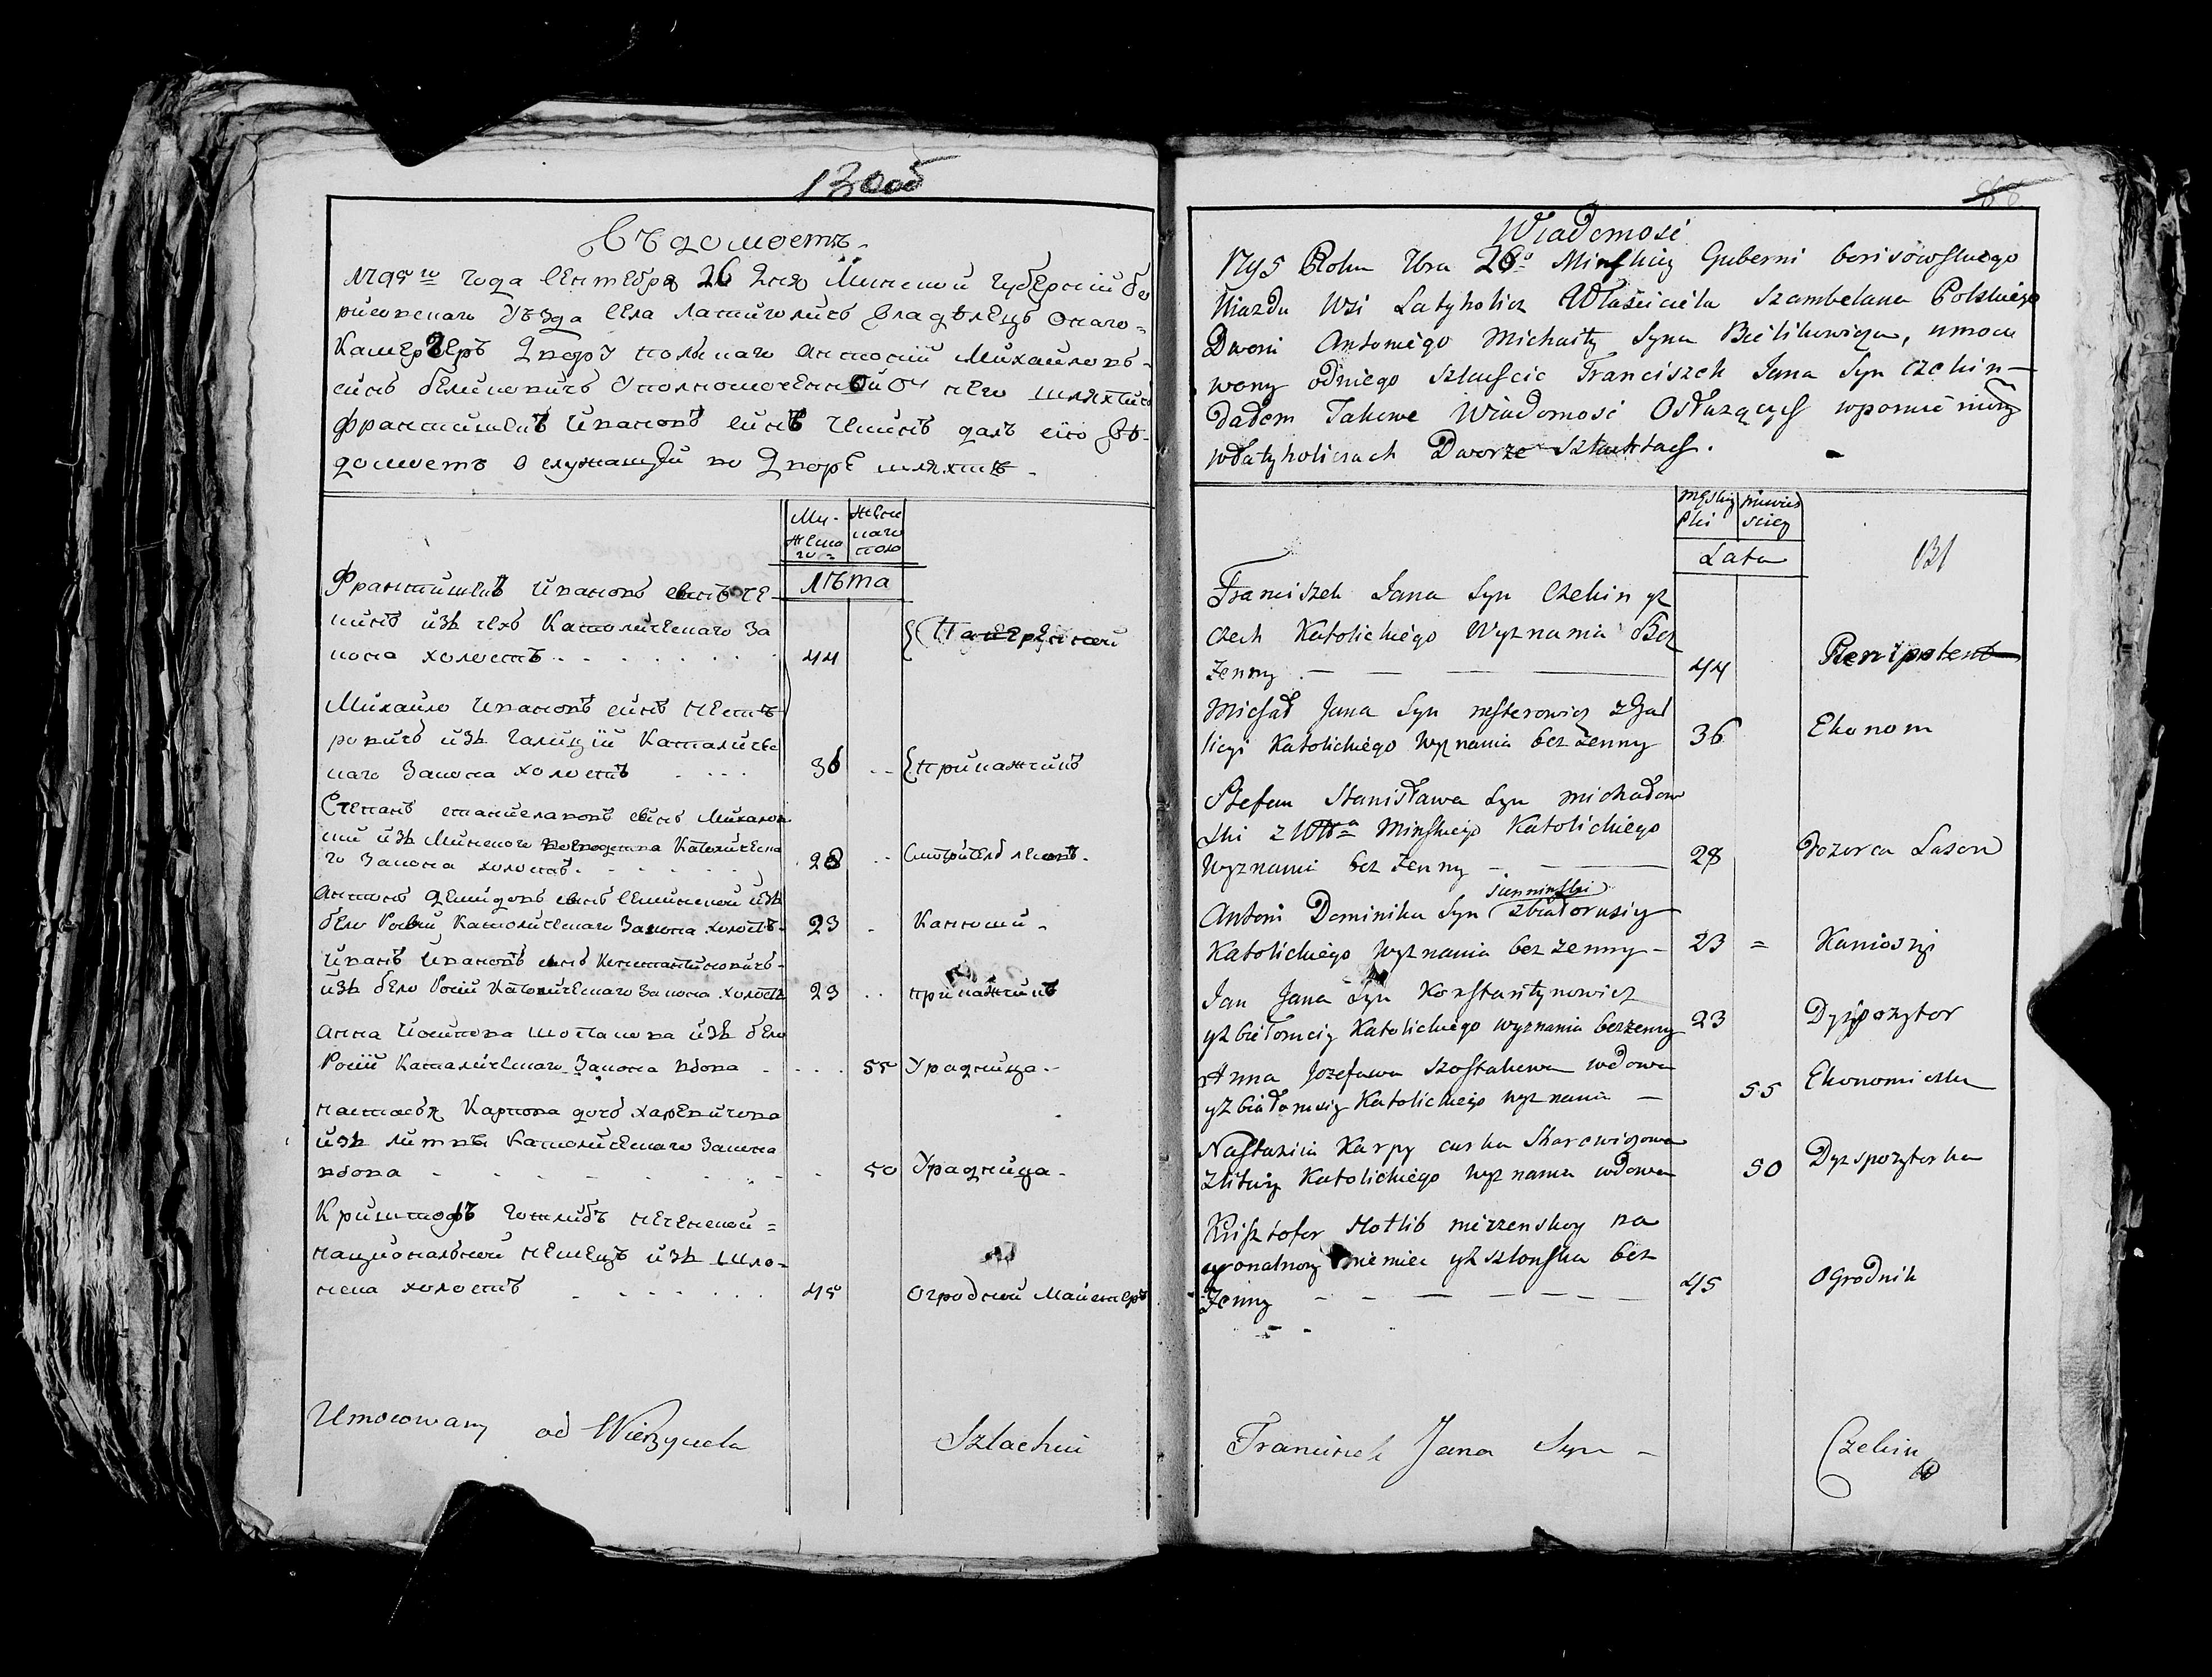 130об
Вѣдомость
1795го года Сентебря 26 Дня Минской Губерний бо
рисовскаго Уѣзда Села Латиголичь Владѣлецъ Онаго
Камергеръ Двору полскаго Антоний Михайловъ
синъ беликовичъ Уполномоченной От него шляхтичъ
Францишекъ Ивановъ синъ Чекинъ далъ сiю Вѣ-
домость о служащей во Дворе шляхтѣ
Му-
жеска
го
Женс
каго
полю
Лѣта
Францишекъ Ивановъ синъ че-
кинъ изъ чехъ Католическаго За
кона холостъ
44
Паверенной
Михайло Ивановъ синъ несте
ровичъ изъ Галицiй Каталичес
каго Закона холостъ
36
прикажчикъ
Степанъ станиславовъ синъ Михалов
ский изъ Минского Воеводства Католическа
го Закона холостъ
28
Смотритель лесовъ
Антонъ Демидовъ синъ Семинской изъ
бело Росий Католическаго Закона холостъ
23
Конюший
Иванъ Ивановъ синъ Константиновичъ
изъ бело Росий Католическаго Закона холостъ
23
прикажчикъ
Анна Иосипова Шостакова изъ бело
Росий Каталическаго Закона вдова
55
Урадница
Настасья Карпова дочь харевичова
изъ литвы Католическаго Закона
вдова
50
Урадница
Криштофъ Готлибъ неченской
национальной немецъ изъ Шло-
нска холостъ
45
Огродной Майстеръ
Umocowany od Wierzyciela Szlachcic
Wiadomość
1795 Roku 7bra 26o Minskiey Guberni borisowskiego
Ujazdu Wsi Latyholicz Właściciela Szambelana Polskiego
Dworu Antoniego Michaiły Syna Bielikowicza, umoco
wony odniego Szlachcic Franciszek Jana Syn Czekin
dadem Takowe Wiadomość Osłurzących wpomienionych
włatyholiczach Dworze Szlachtach.
męskiey
Płci
niewieś
cicy
Lata
131
Franciszek Jana Syn Czekin yz
czech Katolickiego Wyznania Bez
żenny
44
Plenipotent
Michał Jana Syn nesterowicz zgal
licyi Katolickiego Wyznania bez żenny
36
Ekonom
Stefan Stanisława Syn michałow
ski z Wwa Minskiego Katolickiego
Wyznania bez żenny
28
Dozorca Lasow
Antoni Dominika Syn sieminski zbiałorusiy
Katolickiego Wyznania bez żenny
23
Koniuszy
Jan Jana Syn Konstantynowicz
yzbiełorusiy Katolickiego wyznania bezżenny
23
Dyspozytor
Anna Jozefawa Szostakowa wdowa
yzbiałorusiy Katolickiego wyznania
55
Ekonomiczka
Nastazia Karpy curka Sharewiczowa
zlitwy Katolickiego Wyznania wdowa
50
Dyspozytorka
Krisztofor Hotlib nieczenskoy na
cyonalnoy niemiec yz szlonska bez
żenny
45
OGrodnik
Franciszek Jana Syn Czekin